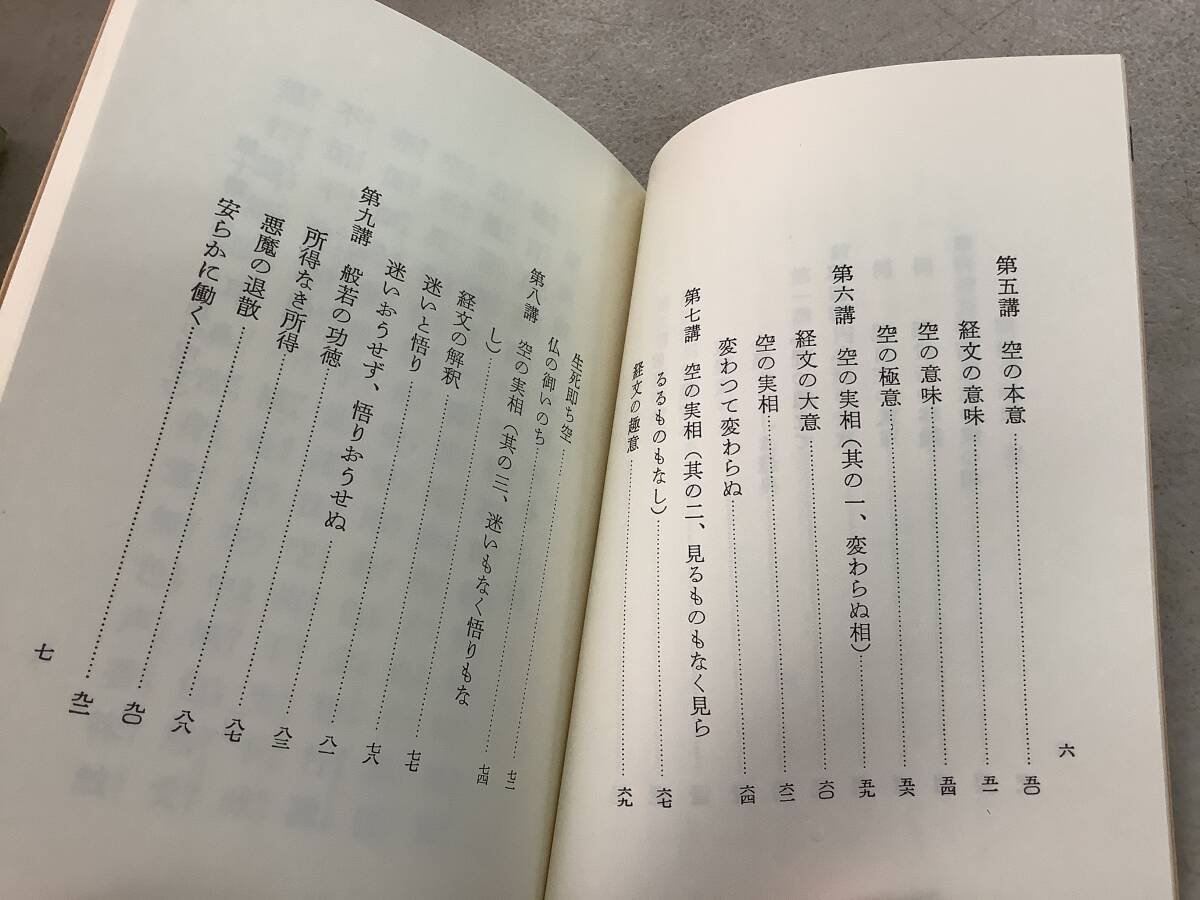 六
第五講　空の本意……五〇
経文の意味……五一
空の意味……五四
空の極意……五六
第六講　空の実相（其の一、変わらぬ相）……五九
経文の大意……六〇
空の実相……六二
変わつて変わらぬ……六四
第七講　空の実相（其の二、見るものもなく見ら
るるものもなし）……六七
経文の趣意……六九
生死即ち空……七二
仏の御いのち……七四
第八講　空の実相（其の三、迷いもなく悟りもな
し）……七七
経文の解釈……七八
迷いと悟り……八一
迷いおうせず、悟りおうせぬ……八三
第九講　般若の功徳……八七
所得なき所得……八八
悪魔の退散……九〇
安らかに働く……九二
七